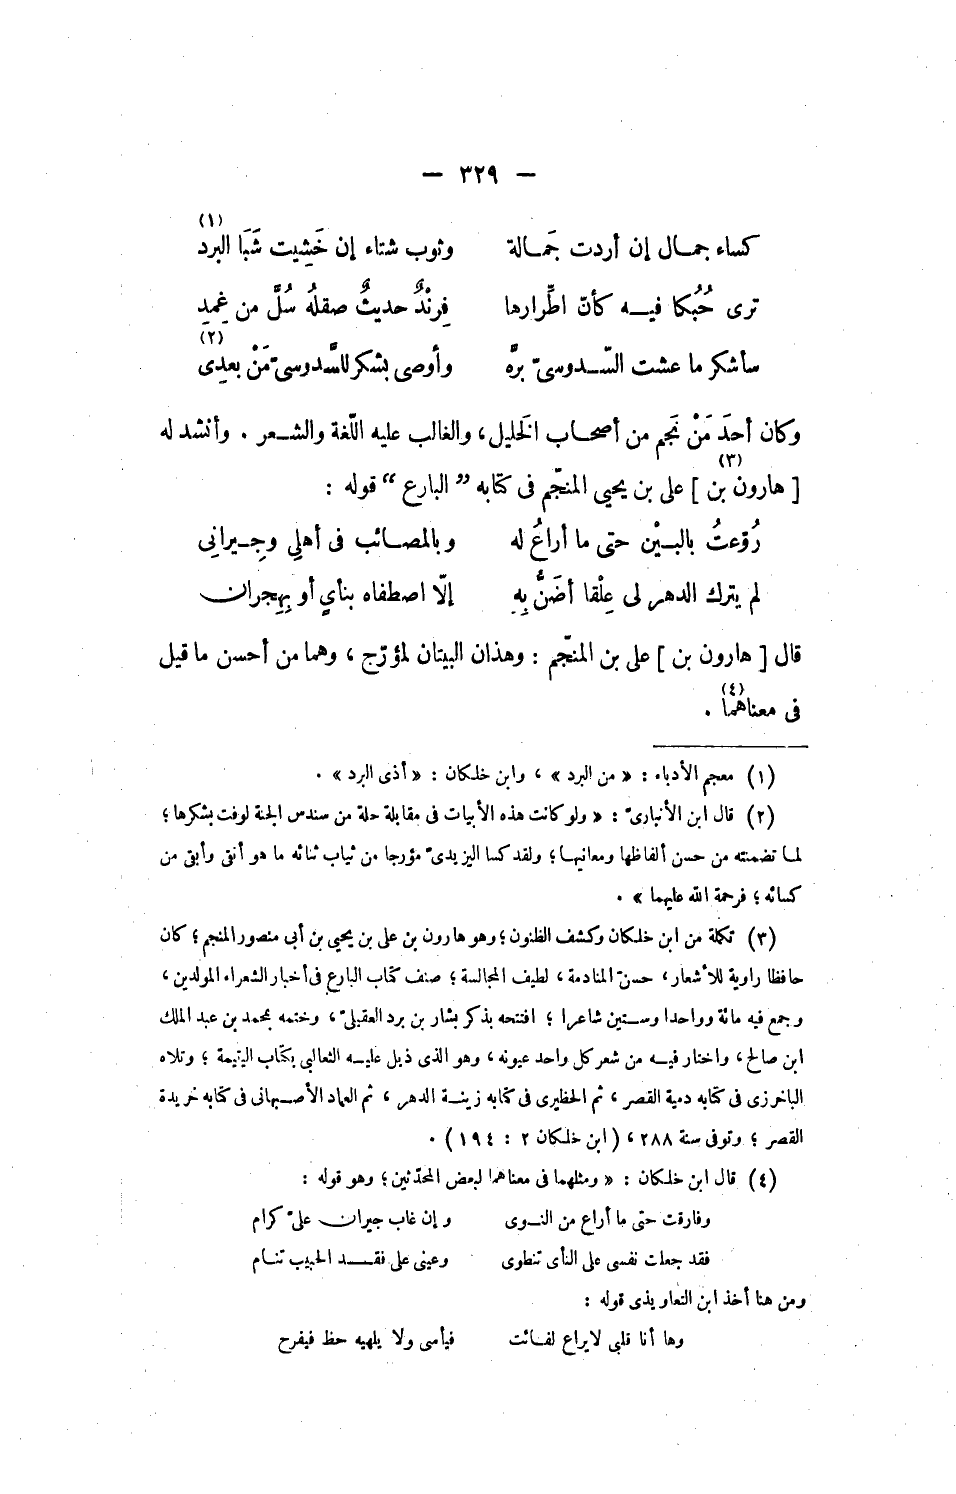 — ٣٢٩ —
كساء جمـال إن أردت جَمـالة وثوب شتاء إن خَشِيت شَبَا البرد (١)
ترى حُبُكا فيـه كأنّ اطِّرارها فِرِنْدٌ حديثٌ صقلُه سُلَّ من غِمدِ
سأشكر ما عشت السّـدوسىّ برَّه وأوصى بشكر للسَّدوسىّ مَنْ بعدِى (٢)
وكان أحدَ مَنْ نَجم من أصحاب الخَليل، والغالب عليه اللّغة والشـعر . وأنشد له
[ هارون بن ] على بن يحيى المنجّم (٣) فى كتابه ” البارع “ قوله :
رُوّعتُ بالبـيْن حتى ما أراعُ له وبالمصـائب فى أهلِي وجِـيرانِى
لم يترك الدهر لى عِلْقا أضَنُّ بِهِ إلّا اصطفاه بنأيٍ أو بِهِجران
قال [ هارون بن ] على بن المنجّم : وهذان البيتان لمؤرّج ، وهما من أحسن ما قيل
فى معناهما (٤) .
(١) معجم الأدباء : « من البرد » ، وابن خلكان : « أذى البرد » .
(٢) قال ابن الأنبارىّ : « ولو كانت هذه الأبيات فى مقابلة حلة من سندس الجنة لوفت بشكرها ؛
لما تضمنته من حسن ألفاظها ومعانيها ؛ ولقد كسا اليزيدىّ مؤرجا من ثياب ثنائه ما هو أنق وأبق من
كسائه ؛ فرحمة الله عليهما » .
(٣) تكلة من ابن خلكان وكشف الظنون ؛ وهو هارون بن على بن يحيى بن أبى منصور المنجم ؛ كان
حافظا راوية للأشعار ، حسنّ المنادمة ، لطيف المجالسة ؛ صنف كتاب البارع فى أخبار الشعراء المولدين ،
وجمع فيه مائة وواحدا وستين شاعرا ؛ افتتحه بذكر بشار بن برد العقيلىّ ، وختمه بمحمد بن عبد الملك
ابن صالح ، واختار فيـه من شعر كل واحد عيونه ، وهو الذى ذيل عليـه الثعالبى بكتاب اليتيمة ؛ وتلاه
الباخرزى فى كتابه دمية القصر ، ثم الحظيرى فى كتابه زينـة الدهر ، ثم العماد الأصبهانى فى كتابه خريدة
القصر ؛ وتوفى سنة ٢٨٨ ، ( ابن خلكان ٢ : ١٩٤ ) .
(٤) قال ابن خلكان : « ومثلهما فى معناهما لبعض المحدّثين ؛ وهو قوله :
وفارقت حتى ما أراع من النـوى وإن غاب جيران علىّ كرام
فقد جعلت نفسى على النأى تنطوى وعينى على فقـد الحبيب تنـام
ومن هنا أخذ ابن التعاويذى قوله :
وها أنا قلبى لا يراع لفـائت فيأسى ولا يلهيه حظ فيفرح